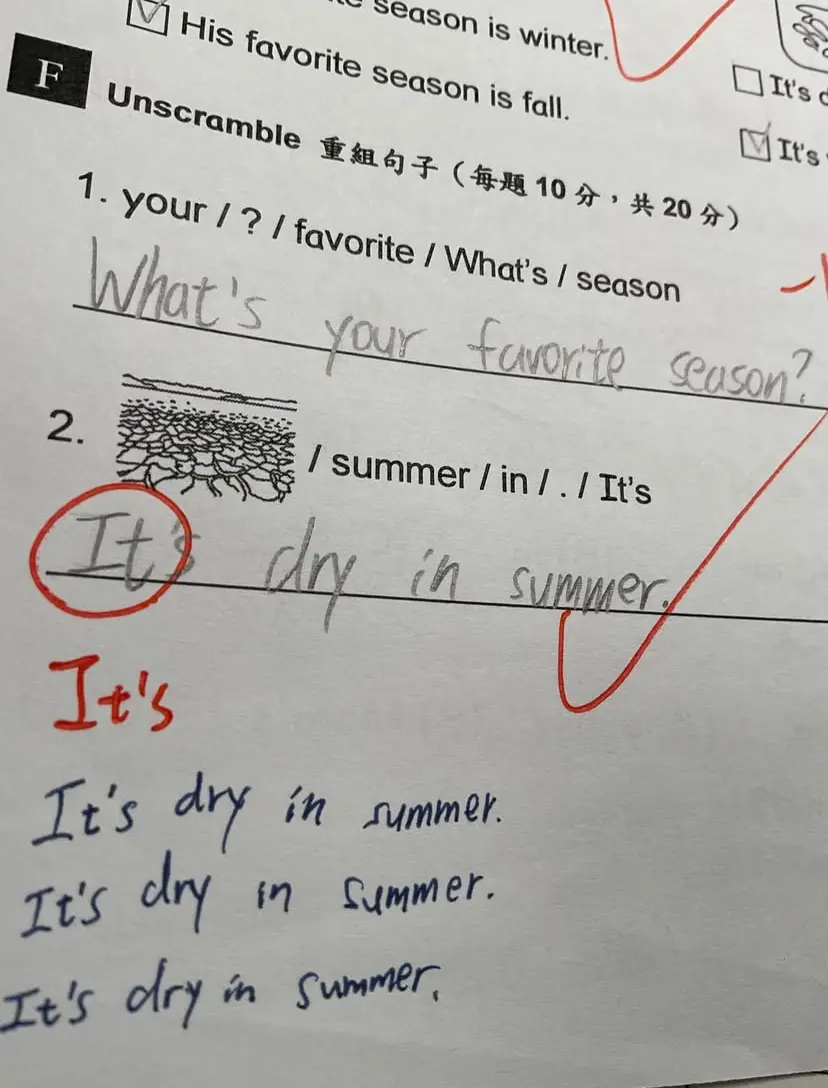 season is winter.
His favorite season is fall.
It's
It's
F
Unscramble 重組句子（每題 10 分，共 20 分）
1. your / ? / favorite / What's / season
What's your favorite season?
2. / summer / in / . / It's
It's dry in summer.
It's
It's dry in summer.
It's dry in summer.
It's dry in summer.